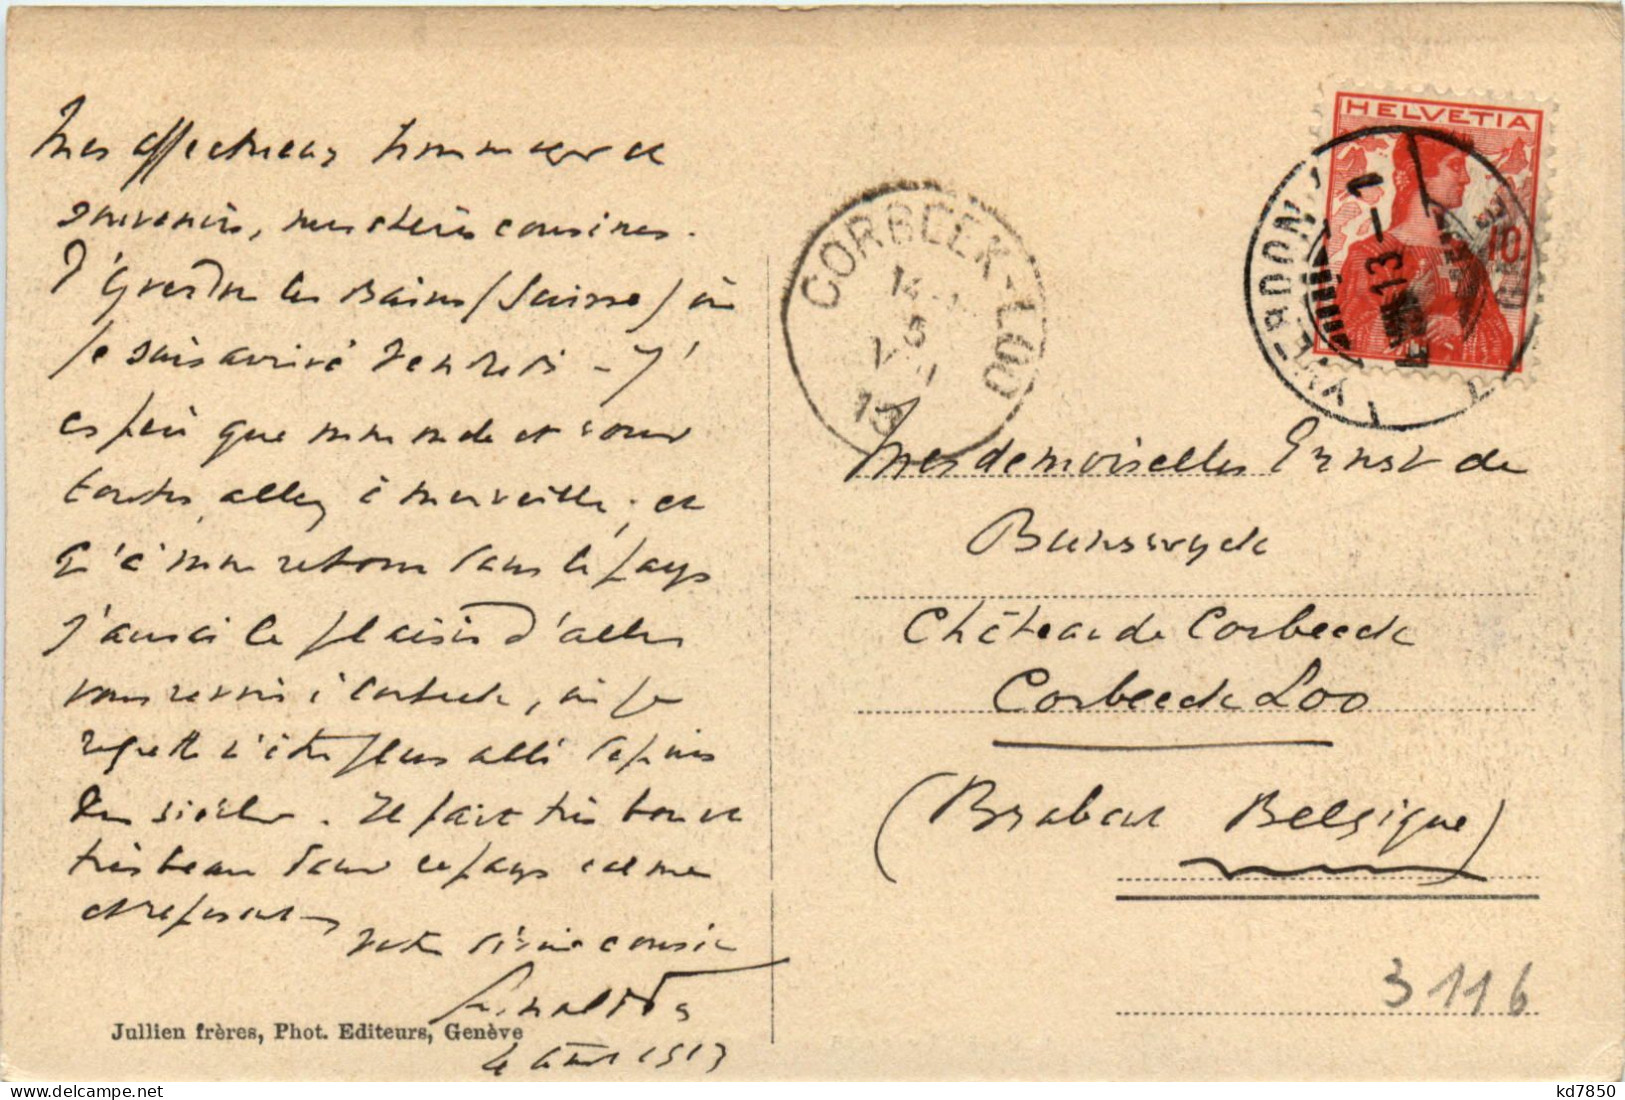 Mes affectueux hommages et
souvenirs, mes chères cousines.
d'Yverdon les Bains (Suisse) où
je suis arrivé vendredi – J'
espère que mon monde et vous
toutes, allez à merveille, et
qu'à mon retour dans le pays
j'aurai le plaisir d'aller
vous revoir à Corbeek, où je
regrette n'être plus allé depuis
des siècles. Il fait très bon et
très beau dans ce pays calme
et reposant
votre
cousin
4 août 1913
Jullien frères, Phot. Editeurs, Genève
CORBEEK-LOO
HELVETIA
10
YVERDON
13 – 1
Mesdemoiselles Ernst de
Bunswyck
Château de Corbeeck
Corbeeck Loo
(Brabant Belgique)
3116
kd7850